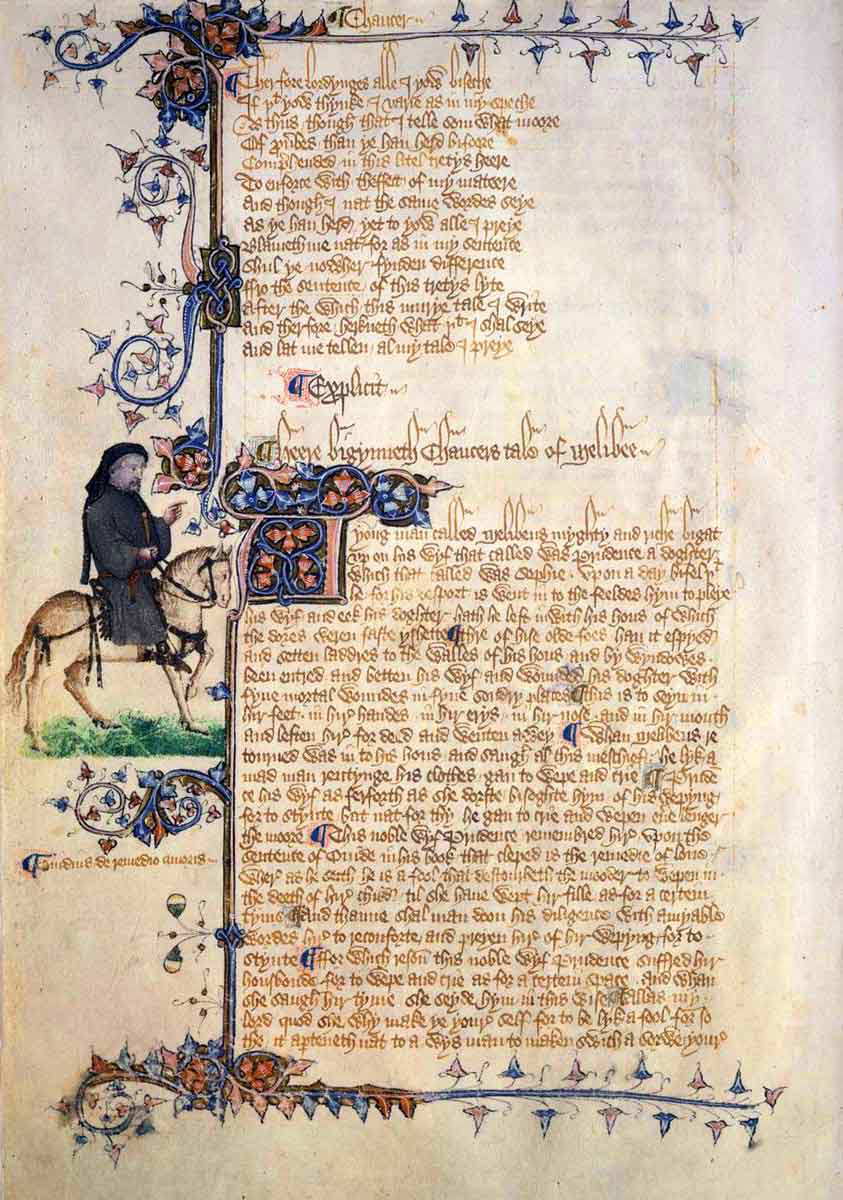 Chaucer
Therfore lordynges alle I yow biseche
If þt yow thynke I varie as in my speche
As thus though that I telle som what moore
Of prouerbes than ye han herd bifoore
Comprehended in this litel tretys heere
To enforce with theffect of my mateere
And though I nat the same wordes seye
As ye han herd yet to yow alle I preye
Blameth me nat for as in my sentence
Shul ye nowher fynden difference
ffro the sentence of this tretys lyte
After the which this murye tale I write
And therfore herkneth what þt I shal seye
And lat me tellen al my tale I preye
Explicit
Heere bigynneth Chaucers tale of Melibee
A yong man called Melibeus myghty and riche bigat
vp on his wyf that called was Prudence a doghter
which that called was Sophie . vpon a day bifel þt
he for his desport is went in to the feeldes hym to pleye
his wyf and eek his doghter hath he left inwith his hous of which
the dores weren faste yshette Thre of hise olde foes han it espyed
and setten laddres to the walles of his hous and by wyndowes
been entred and betten his wyf and wounded his doghter with
fyue mortal woundes in fyue sondry places This is to seyn in
hir feet . in hir handes . in hir erys . in hir nose . and in hir mouth
and leften hir for deed and wenten awey Whan Melibeus re
tourned was in to his hous and saugh al this meschief . he lyk a
mad man rentynge his clothes gan to wepe and crie Pruden
ce his wyf as ferforth as she dorste bisoghte hym of his wepyng
for to stynte but nat for thy he gan to crie and wepen euere lenger
the moore This noble wyf Prudence remembred hir vpon the
sentence of Ouide in his book that cleped is the remedie of loue
wher as he seith he is a fool that destourbeth the mooder to wepen in
the deeth of hir child til she haue wept hir fille as for a certein
tyme And thanne shal man doon his diligence with amyable
wordes hir to reconforte and preyen hir of hir wepyng for to
stynte ffor which reson this noble wyf Prudence suffred hir
housbonde for to wepe and crie as for a certein space . and whan
she saugh hir tyme she seyde hym in this wise Allas my
lord quod she why make ye youre self for to be lyk a fool for so
the it aperteneth nat to a wys man to maken swich a sorwe youre
Ouidius de remedio amoris